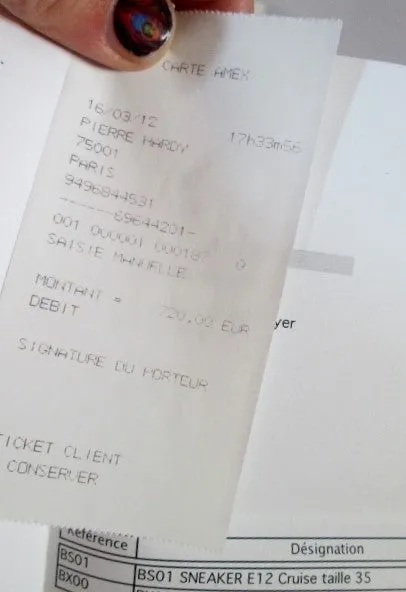 CARTE AMEX
16/03/12 17h33m56
PIERRE HARDY
75001
PARIS
9496844531
------69644201-
001 000001 000187 0
SAISIE MANUELLE
MONTANT = 720,00 EUR
DEBIT
SIGNATURE DU PORTEUR
TICKET CLIENT
CONSERVER
yer
Référence Désignation
BS01 BS01 SNEAKER E12 Cruise taille 35
BX00